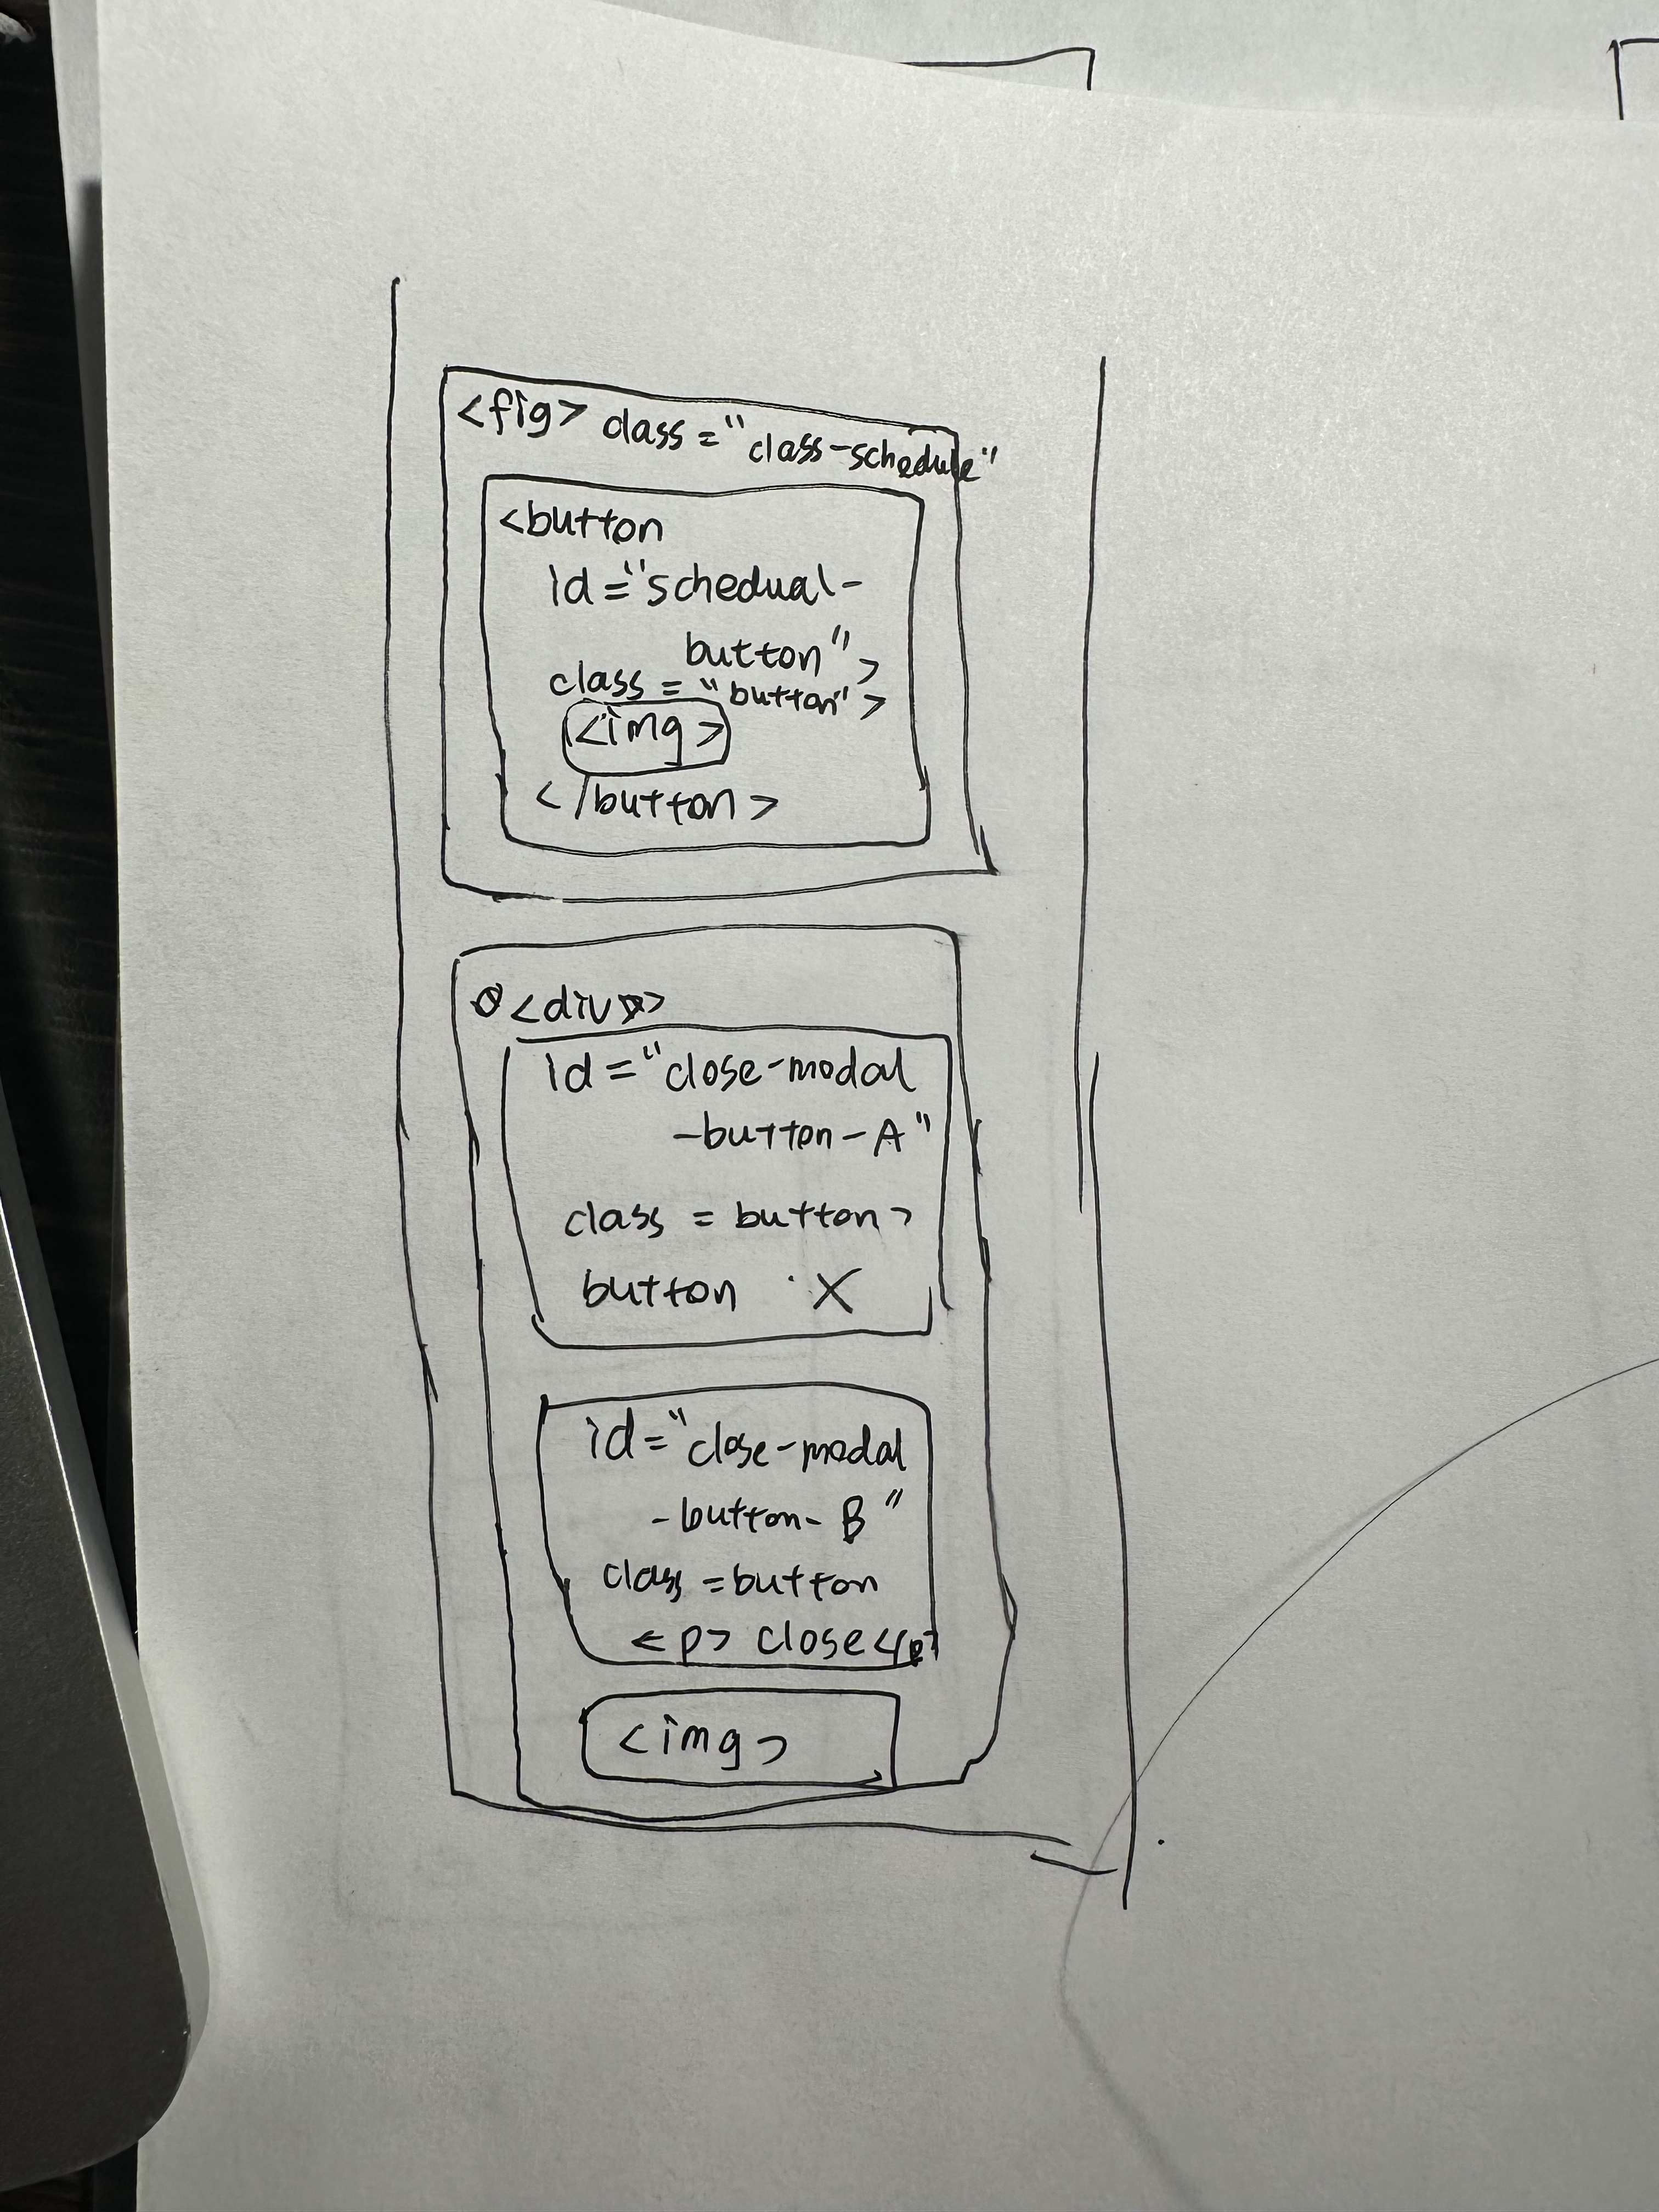 <fig> class="class-schedule"
<button
id="schedual-
button">
class="button">
<img>
</button>
<div>
id="close-modal
-button-A"
class = button>
button X
id="close-modal
-button-B"
class = button
<p> close </p>
<img>